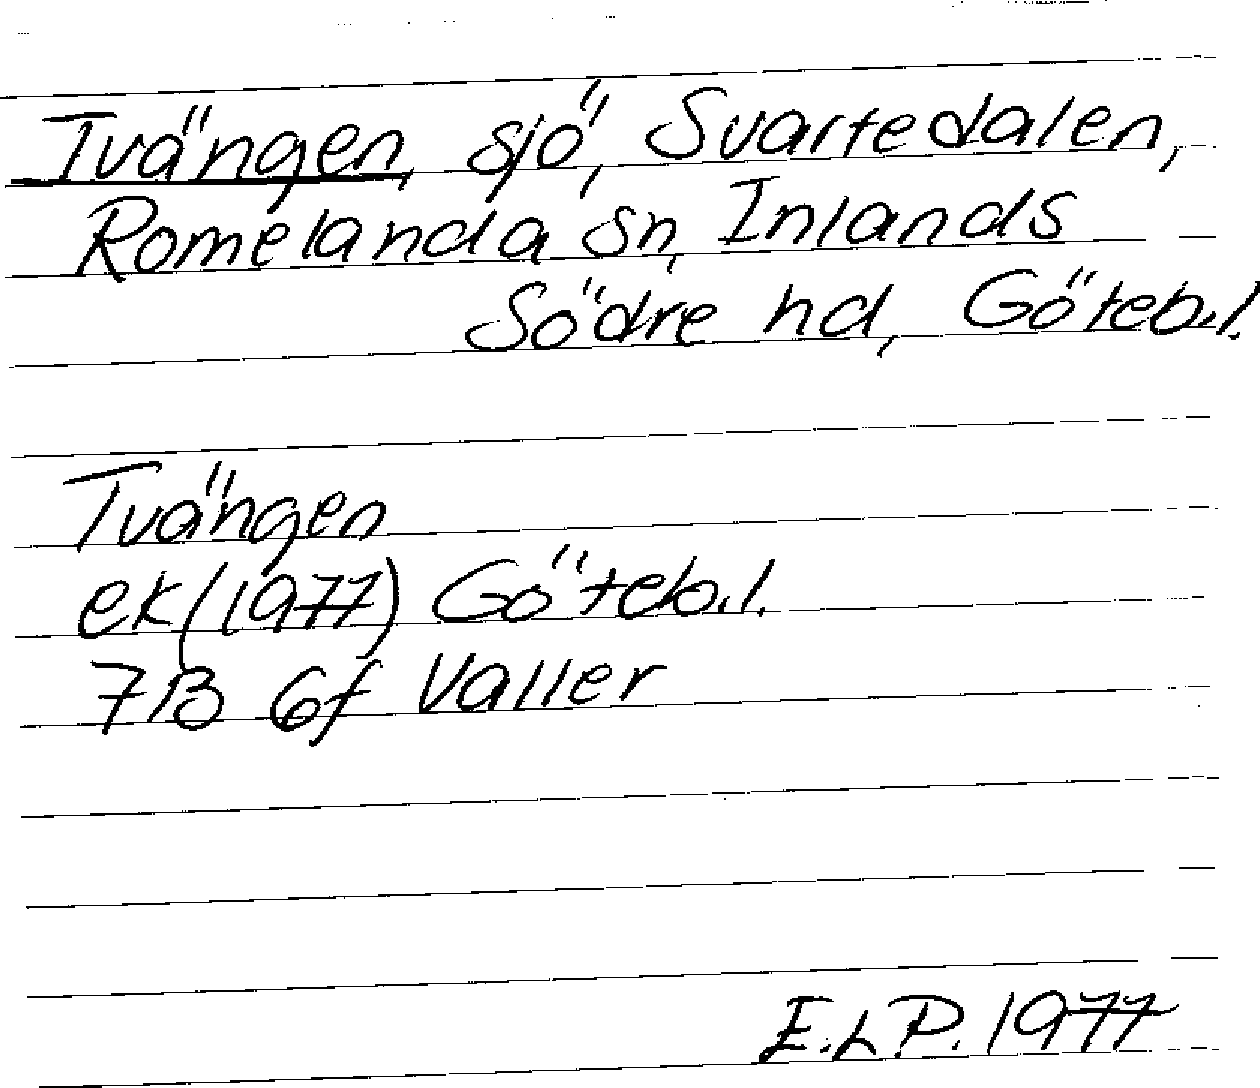 Tvängen, sjö, Svartedalen,
Romelanda sn, Inlands
Södre hd, Göteb.l.
Tvängen
ek (1977) Göteb.l.
7B 6f Valler
E.L.P. 1977